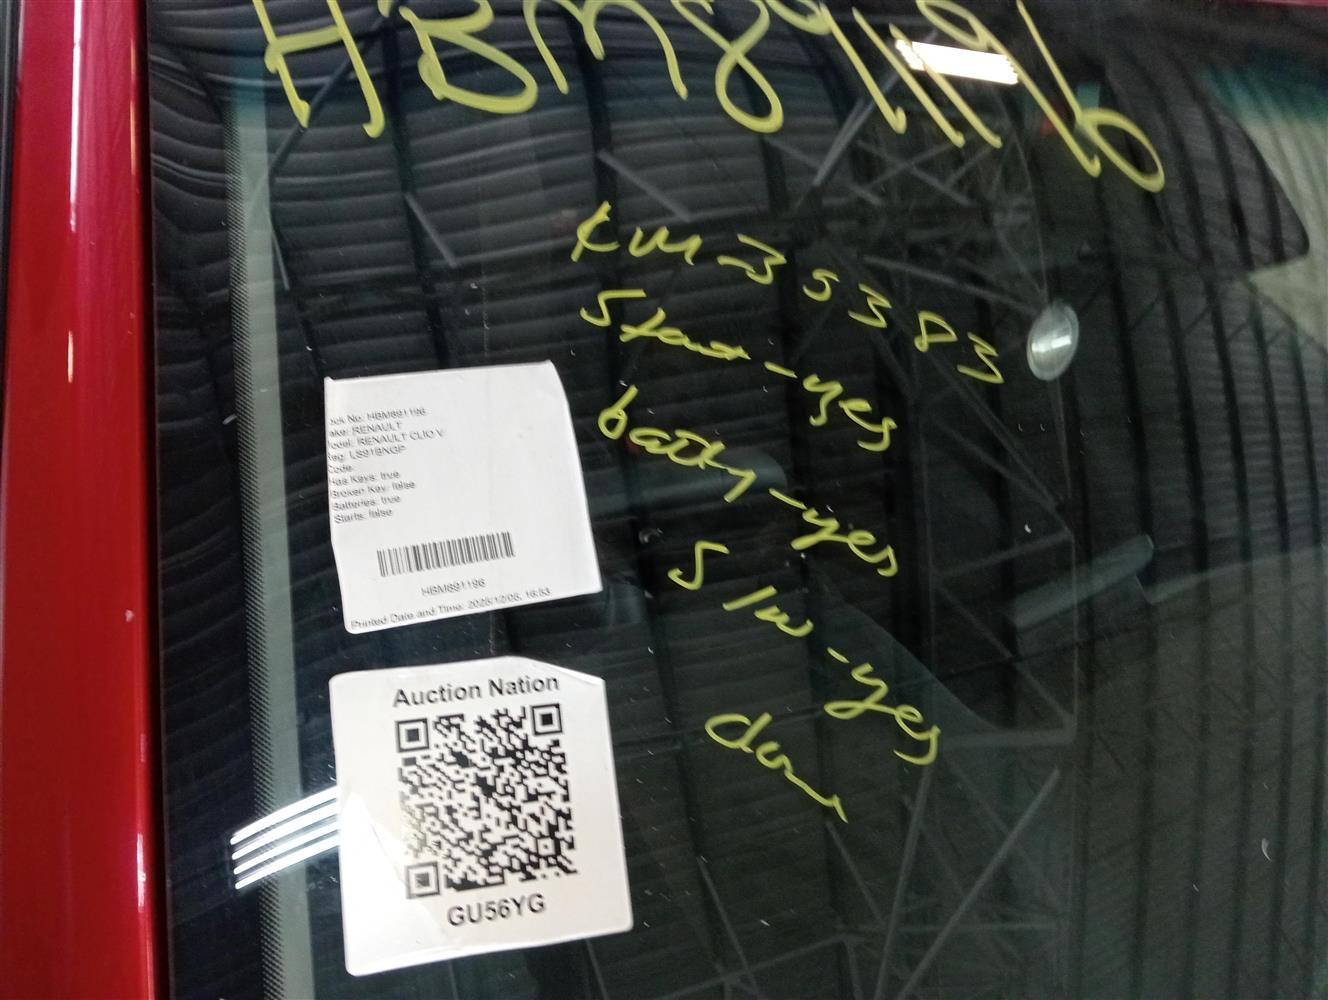 HBM891196
km 35383
Start-yes
battry-yes
S/w-yes
ock No: HBM891196
ake: RENAULT
odel: RENAULT CLIO V
Reg: LS91BNGP
Code:
Has Keys: true
Broken Key: false
Batteries: true
Starts: false
HBM891196
Printed Date and Time: 2025/12/05, 16:53
Auction Nation
GU56YG